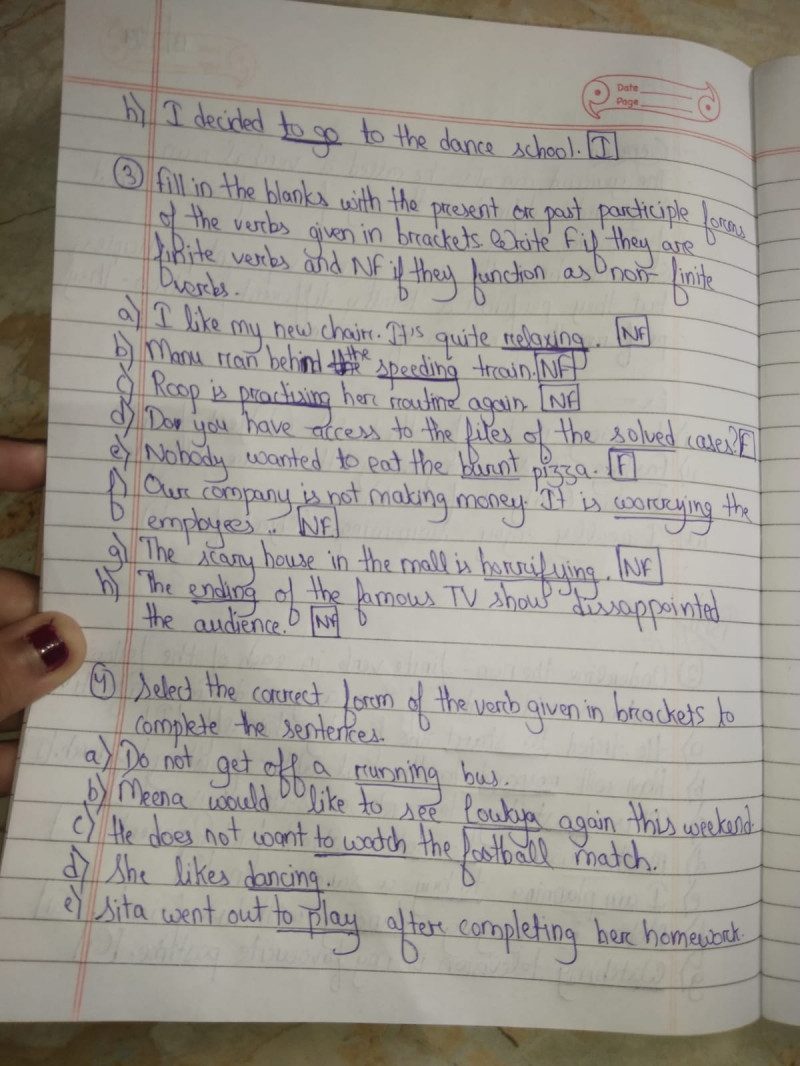 Date
Page
h) I decided to go to the dance school. I
③ Fill in the blanks with the present or past participle forms
of the verbs given in brackets. Write F if they are
finite verbs and NF if they function as non-finite
verbs.
a) I like my new chair. It's quite relaxing. NF
b) Manu ran behind the speeding train. NF
c) Roop is practising her routine again. NF
d) Do you have access to the files of the solved cases? F
e) Nobody wanted to eat the burnt pizza. F
f) Our company is not making money. It is worrying the
employees.. NF
g) The scary house in the mall is horrifying. NF
h) The ending of the famous TV show dissappointed
the audience. NF
④ Select the correct form of the verb given in brackets to
complete the sentences.
a) Do not get off a running bus.
b) Meena would like to see Loukya again this weekend.
c) He does not want to watch the football match.
d) She likes dancing.
e) Sita went out to play after completing her homework.